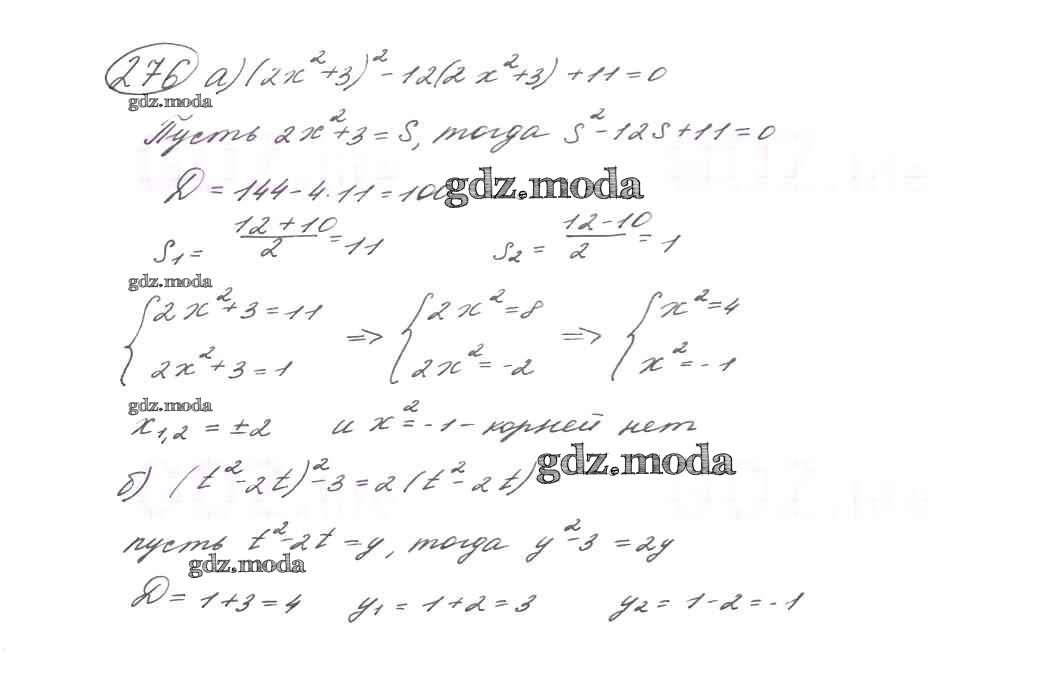 276 а) (2x²+3)² - 12(2x²+3) + 11 = 0
gdz.moda
Пусть 2x²+3 = S, тогда S² - 12S + 11 = 0
D = 144 - 4·11 = 100 gdz.moda
S₁ = (12+10)/2 = 11 S₂ = (12-10)/2 = 1
gdz.moda
{2x²+3 = 11 => {2x² = 8 => {x² = 4
{2x²+3 = 1 {2x² = -2 {x² = -1
gdz.moda
x₁,₂ = ±2 и x² = -1 - корней нет
gdz.moda
б) (t²-2t)² - 3 = 2(t²-2t)
пусть t²-2t = y, тогда y²-3 = 2y
gdz.moda
D = 1+3 = 4 y₁ = 1+2 = 3 y₂ = 1-2 = -1